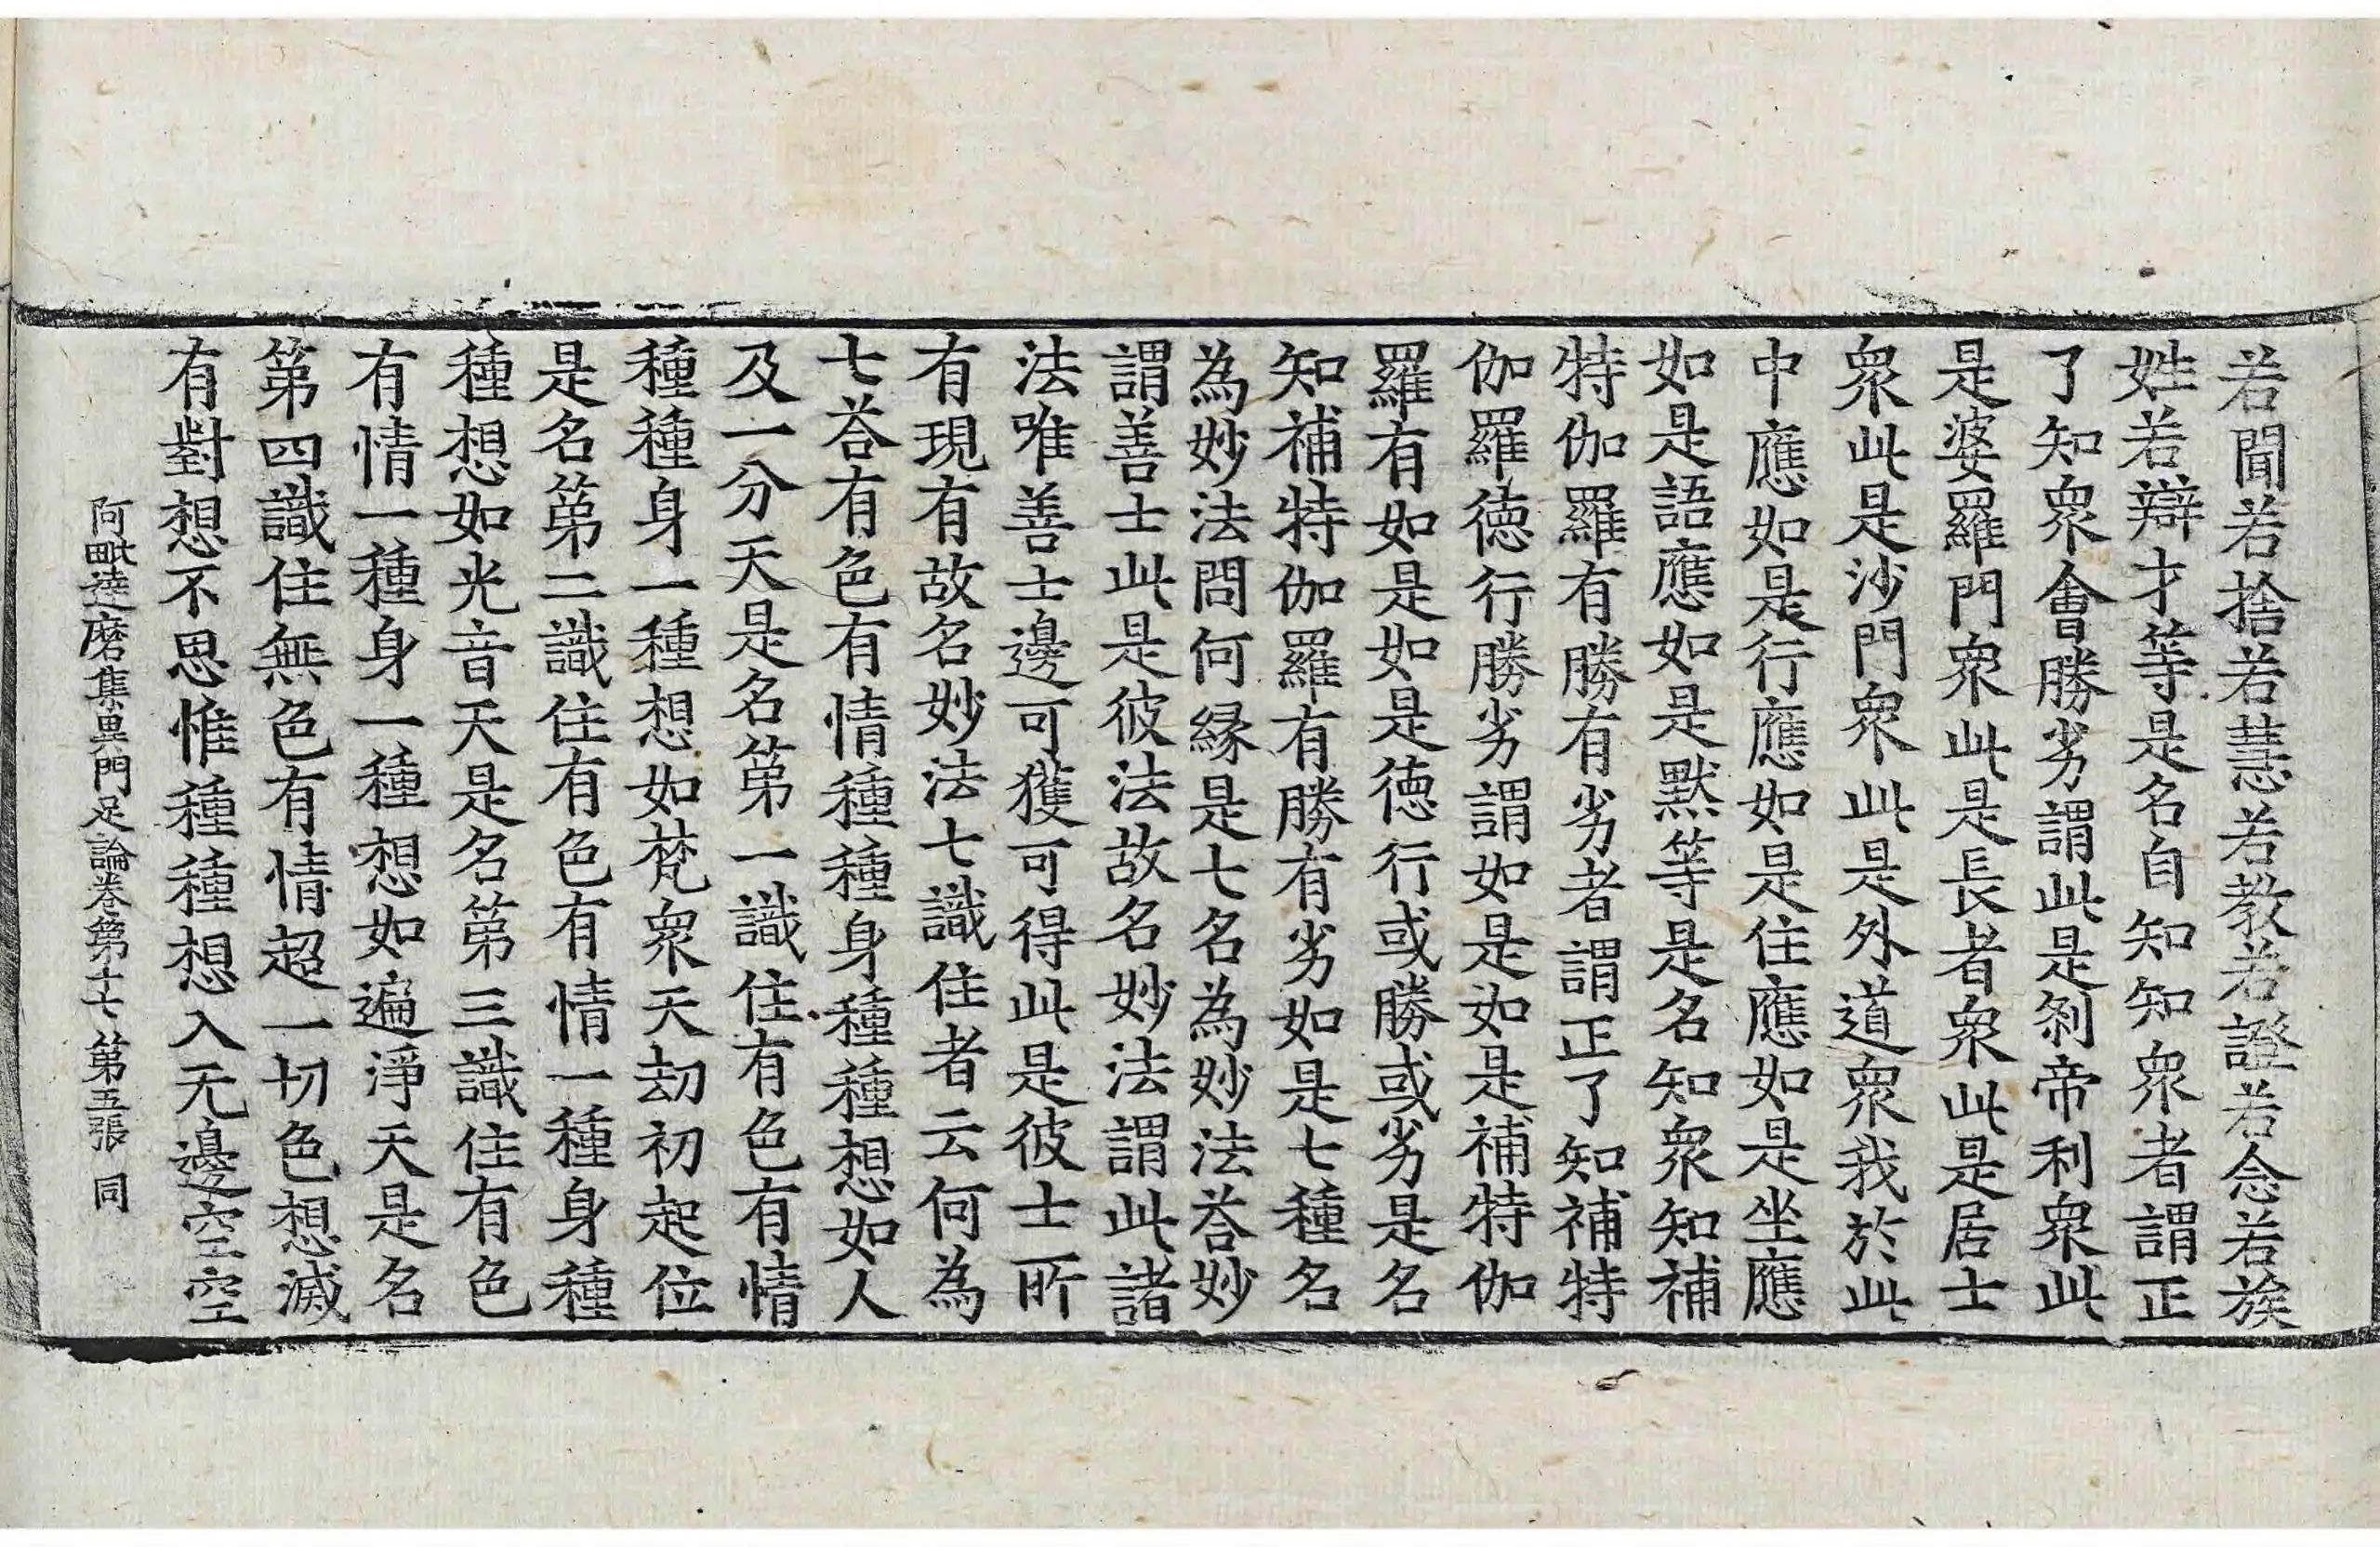 若聞若捨若慧若教若證若念若族
姓若辯才等是名自知知衆者謂正
了知衆會勝劣謂此是刹帝利衆此
是婆羅門衆此是長者衆此是居士
衆此是沙門衆此是外道衆我於此
中應如是行應如是住應如是坐應
如是語應如是默等是名知衆知補
特伽羅有勝有劣者謂正了知補特
伽羅德行勝劣謂如是如是補特伽
羅有如是如是德行或勝或劣是名
知補特伽羅有勝有劣如是七種名
為妙法問何緣是七名為妙法荅妙
謂善士此是彼法故名妙法謂此諸
法唯善士邊可獲可得此是彼士所
有現有故名妙法七識住者云何為
七荅有色有情種種身種種想如人
及一分天是名第一識住有色有情
種種身一種想如梵衆天劫初起位
是名第二識住有色有情一種身種
種想如光音天是名第三識住有色
有情一種身一種想如遍淨天是名
第四識住無色有情超一切色想滅
有對想不思惟種種想入无邊空空
阿毗達磨集異門足論卷第十七 第五張 同